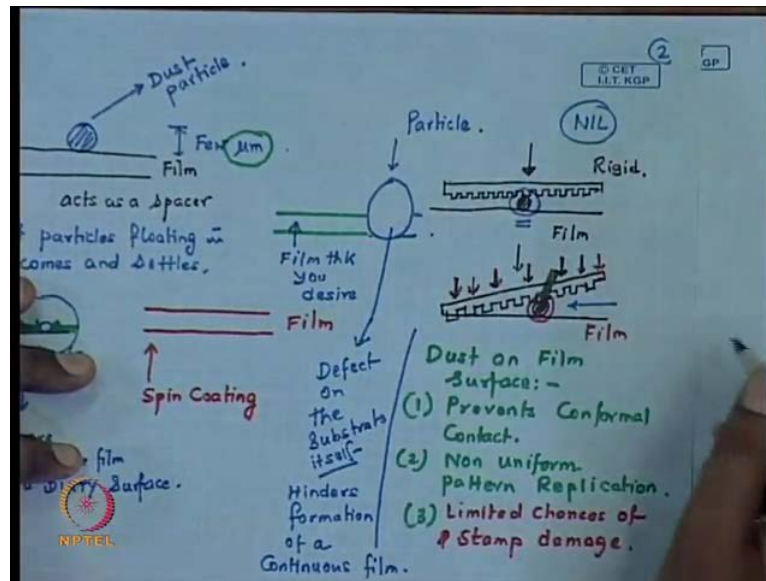 ②
© CET
I.I.T. KGP
GP
Dust
particle.
Few μm
Film
acts as a spacer
particles floating in
comes and settles.
Film
Spin Coating
film
Dirty Surface.
Particle.
Film thk
you
desire
Defect
on
the
Substrate
itself
Hinders
formation
of a
Continuous film.
NIL
Rigid.
Film
Film
Dust on Film
Surface:-
(1) Prevents Conformal
Contact.
(2) Non uniform
pattern Replication.
(3) Limited Chances of
Stamp damage.
NPTEL